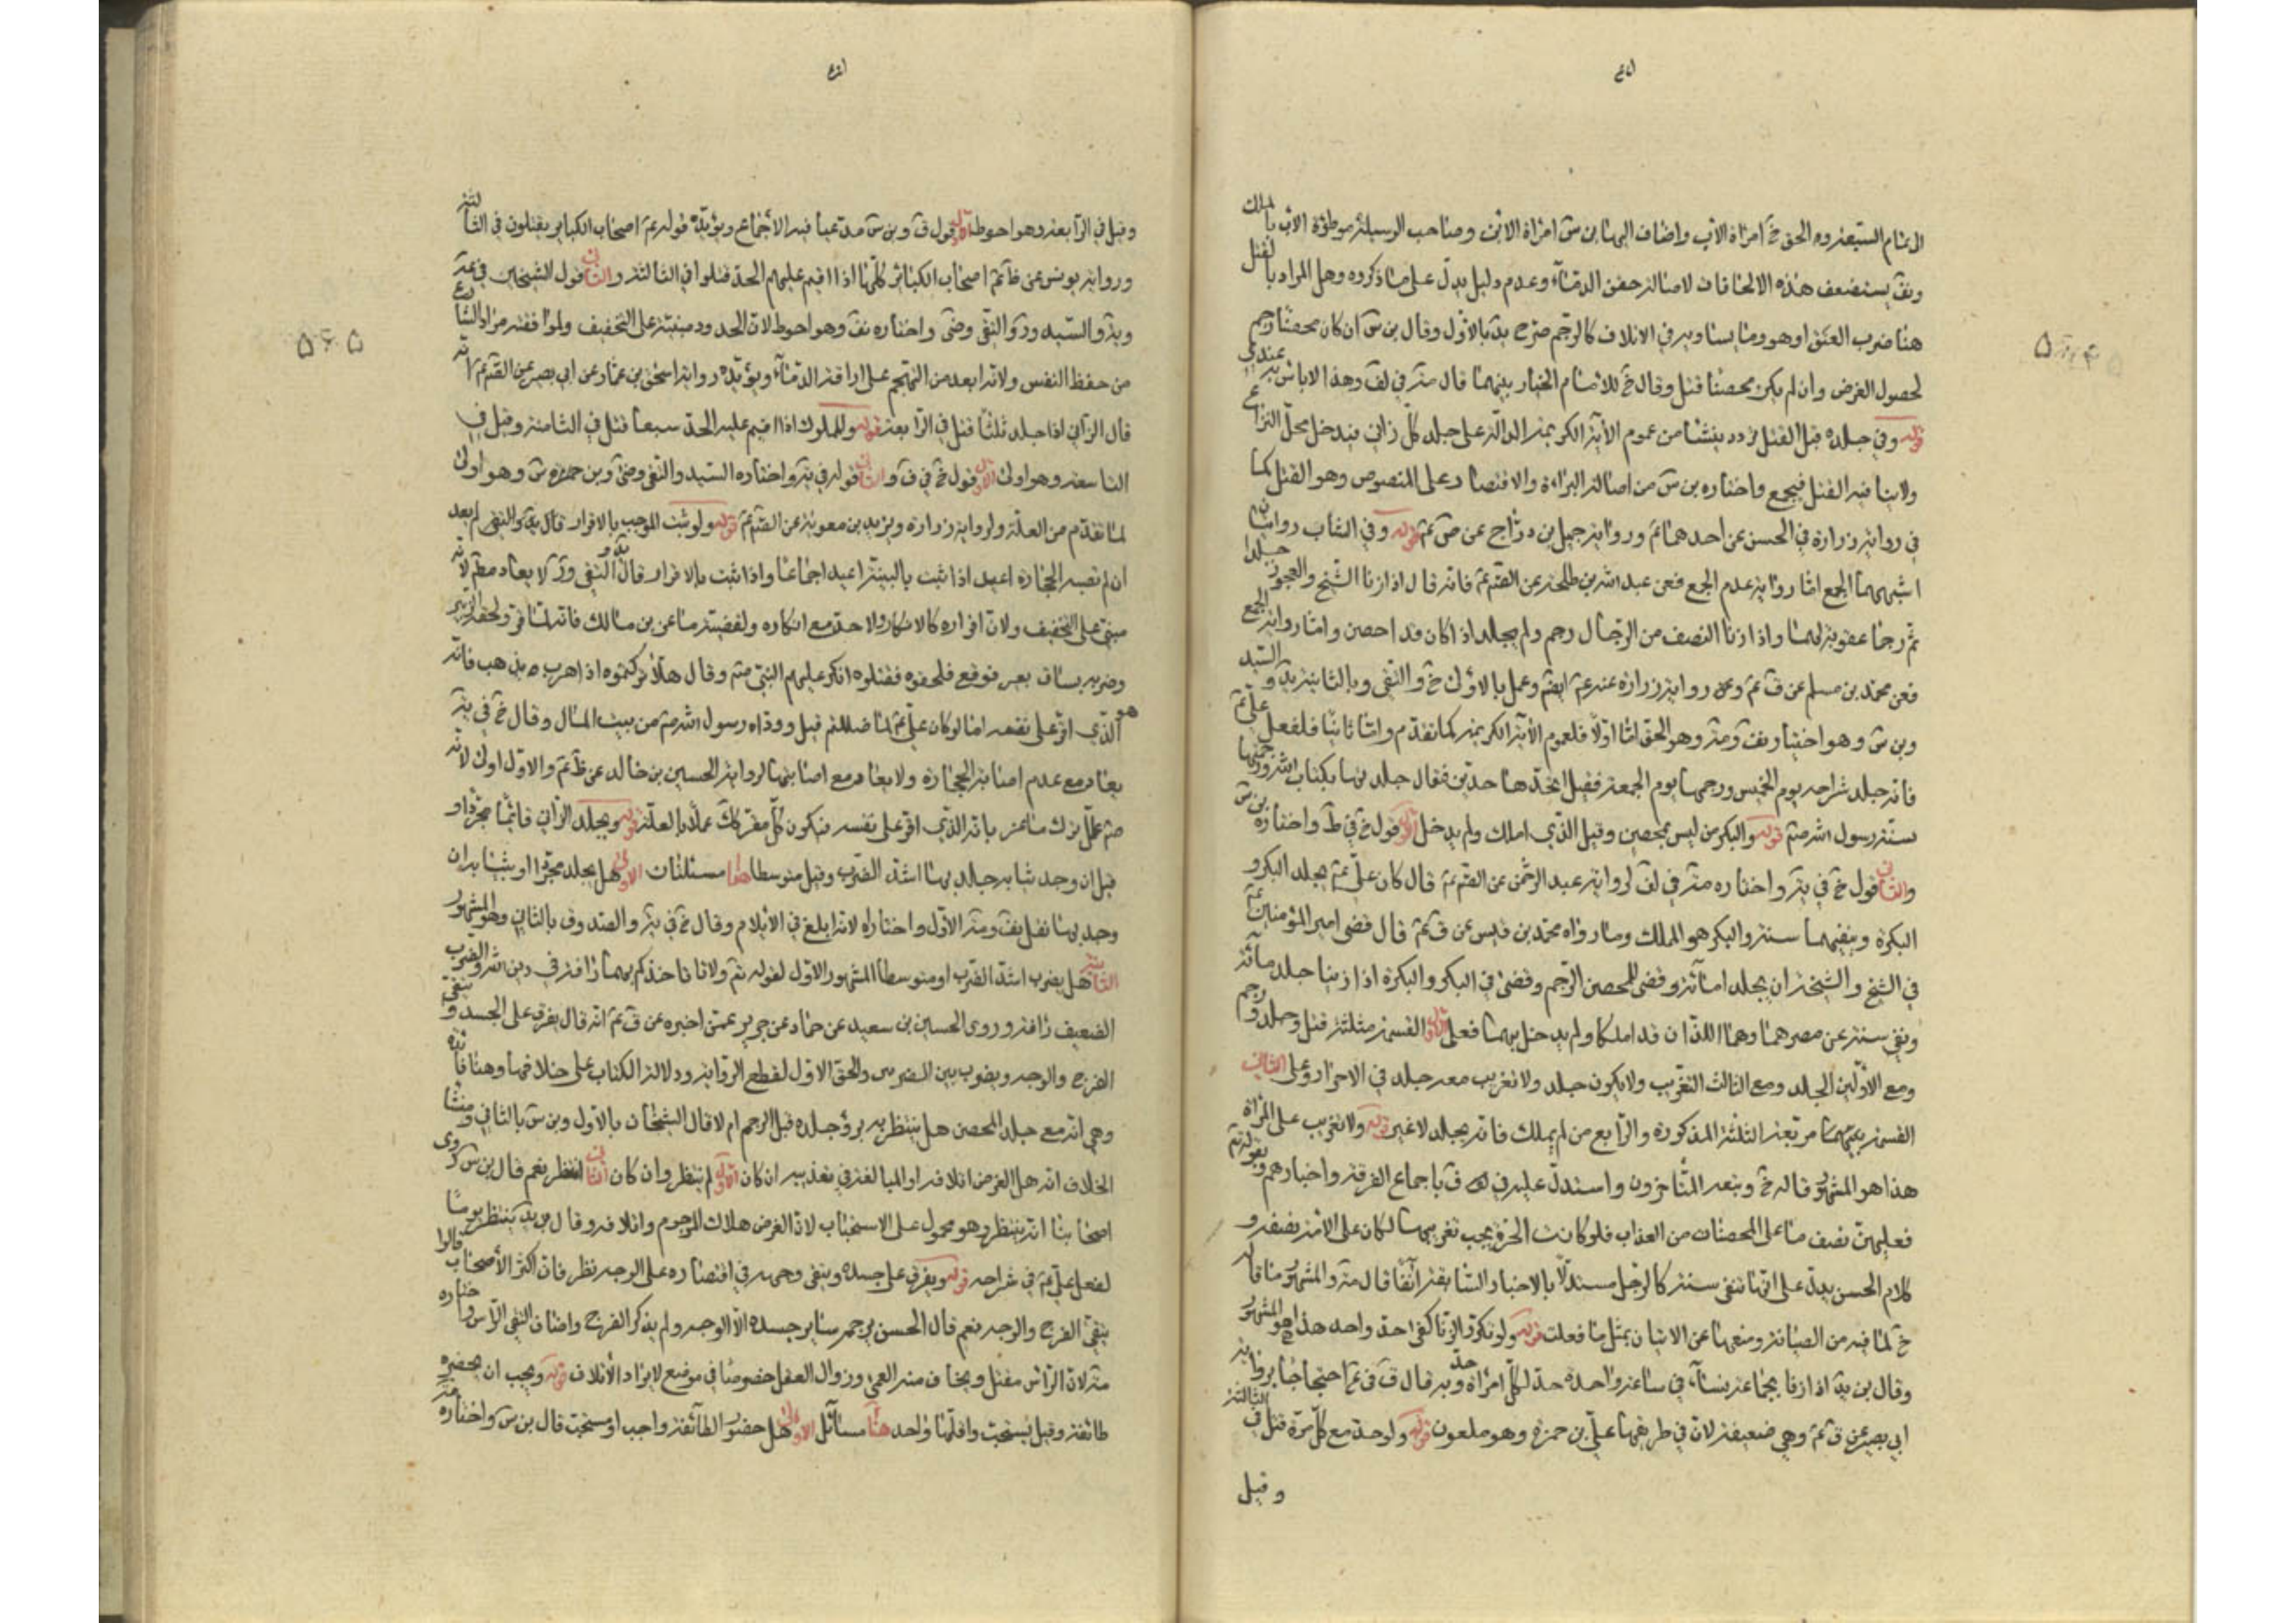 الى تمام السبعة ره الحق خ امراة الاب واضاف اليها بن س امراة الابن وصاحب الوسيلة موطؤة الاب بالملك
ونق يستضعف هذه الالحاقات لاصالة حقن الدماء وعدم دليل يدل على ما ذكروه وهل المراد بالقتل
هنا ضرب العنق او هو وما يساويه في الاتلاف كالرجم صرح يد بالاول وقال بن س ان كان محصنا رجم
لحصول الغرض وان لم يكن محصنا قتل وقال خ للامام الخيار بينهما قال متر في لف وهذا لا باس به عندي
قوله وفي جلده قبل القتل تردد ينشا من عموم الآية الكريمة الدالة على جلد كل زاني فيدخل محل النزاع
ولا ينافيه القتل فيجمع واختاره بن س من اصالة البراءة والاقتصار على المنصوص وهو القتل كما
في رواية زرارة في الحسن عن احدهما ع ورواية جميل بن دراج عن ص ع قوله وفي الشاب روايتان
اشبههما الجمع اما رواية عدم الجمع فعن عبد الله بن طلحة عن الصم ع فانه قال اذا زنا الشيخ والعجوز جلدا
ثم رجما عقوبة لهما واذا زنا النصف من الرجال رجم ولم يجلد اذا كان قد احصن واما رواية الجمع
فعن محمد بن مسلم عن ق ع وعن رواية زرارة عنه ع ايضم وعمل بالاول خ والتقى وبالثانية يد والسيد
وبن س وهو اختيار نف ومتر وهو الحق اما اولا فلعموم الآية الكريمة كما تقدم واما ثانيا فلفعل علي ع
فانه جلد شراحه يوم الخميس ورجمها يوم الجمعة فقيل اتحدها حدين فقال جلدتها بكتاب الله ورجمتها
بسنة رسول الله صم قوله والبكر من ليس بمحصن وقيل الذي املك ولم يدخل الاول قول خ في ط واختاره بن س
والثاني قول خ في يتر واختاره متر في لف لرواية عبد الرحمن عن الصم ع قال كان علي ع يجلد البكر و
البكرة وينفيهما سنة والبكر هو المملك وما رواه محمد بن قيس عن ق ع قال قضى امير المؤمنين ع
في الشيخ والشيخة ان يجلد امائة وقضى للمحصن الرجم وقضى في البكر والبكرة اذا زنيا جلد مائة
ونفي سنة عن مصرهما وهما اللذان قد املكا ولم يدخل بهما فعلى الاول القسمة مثلثة قتل وجلد ورجم
ومع الاولين الجلد ومع الثالث التغريب ولا يكون جلد ولا تغريب معه جلد في الاحرار وعلى الثاني
القسمة بينهما مربعة الثلثة المذكورة والرابع من لم يملك فانه يجلد لا غير قوله ولا تغريب على المراة
هذا هو المشهور قاله خ وتبعه المتاخرون واستدل عليه في ف باجماع الفرقة واخبارهم وبقوله تم
فعليهن نصف ما على المحصنات من العذاب فلو كانت الحرة يجب تغريبها لكان على الامة نصفه و
كلام الحسن يدل على انها تنفى سنة كالرجل مستدلا بالاخبار السابقة آنفا قال متر والمشهور ما قاله
خ لما فيه من الصيانة ومنعها عن الاتيان بمثل ما فعلت قوله ولو تكرر الزنا كفى حد واحد هذا هو المشهور
وقال بن يد اذا زنا بجماعة نساء في ساعة واحدة حد لكل امراة حد وبه قال ق في ع احتجاجا برواية
ابي بصير عن ق ع وهي ضعيفة لان في طريقها علي بن حمزة وهو ملعون قوله ولو حد مع كل مرة قتل في الثالثة
وقيل
وقيل في الرابعة وهو احوط الاول قول ق وبن س مدعيا فيه الاجماع ويؤيده قوله ع اصحاب الكباير يقتلون في الثالثة
ورواية يونس عن ظ ع اصحاب الكبائر كلها اذا اقيم عليهم الحد قتلوا في الثالثة والثاني قول الشيخين في عير
ويد والسيد ورو التقى وضى واختاره نف وهو احوط لان الحدود مبنية على التخفيف ولموافقته مراد الشارع
من حفظ النفس ولانه ابعد من التهجم على اراقة الدماء ويؤيده رواية اسحق بن عمار عن ابي بصير عن الصم ع انه
قال الزاني اذا جلد ثلثا قتل في الرابعة قوله والمملوك اذا اقيم عليه الحد سبعا قتل في الثامنة وقيل في
التاسعة وهو اولى الاول قول خ في ف والثاني قوله في يتر واختاره السيد والتقى وضى وبن حمزة س وهو اولى
لما تقدم من العلة ولرواية زرارة ويزيد بن معوية عن الصم ع قوله ولو ثبت الموجب بالاقرار قال يد والتقى لم يعد
ان لم تصبه الحجارة اعيد اذا ثبت بالبينة اعيد اجماعا واذا ثبت بالاقرار قال يد و التقى ور لا يعاد مطم لانه
مبني على التخفيف ولان فراره كالانكار ولا حد مع انكاره ولقضية ماعز بن مالك فانه لما فر ولحقه الزبير
وضربه بساق بعير فوقع فلحقوه فقتلوه انكر عليهم النبي صم وقال هلا تركتموه اذا هرب يذهب فانه
هو الذي اقر على نفسه اما لو كان علي ع لما ضللتم قيل ووداه رسول الله صم من بيت المال وقال خ في يتر
يعاد مع عدم اصابة الحجارة ولا يعاد مع اصابتها لرواية الحسين بن خالد عن ظ ع والاول اولى لانه
صم علل ترك ماعز بانه الذي اقر على نفسه فيكون كل مقر كك عملا بالعلة قوله ويجلد الزاني قائما مجردا و
قيل ان وجد بثيابه جلد بها اشد الضرب وقيل متوسطا هنا مسئلتان الاولى هل يجلد مجردا او بثيابه ان
وجد بها نقل نف ومتر الاول واختاراه لانه ابلغ في الايلام وقال خ في يتر والصدوق بالثاني وهو المشهور
الثانية هل يضرب اشد الضرب او متوسطا المشهور الاول لقوله تم ولا تاخذكم بهما رافة في دين الله والضرب
الضعيف رافة وروى الحسين بن سعيد عن حماد عن حريز عمن اخبره عن ق ع انه قال يفرق على الجسد ويتقى
الفرج والوجه ويضرب بين الضربين والحق الاول لقطع الرواية ودلالة الكتاب على خلافها وهنا فائدة
وهي انه مع جلد المحصن هل ينتظر به برؤ جلده قبل الرجم ام لا قال الشيخان بالاول وبن س بالثاني ومنشا
الخلاف انه هل الغرض اتلافه او المبالغة في تعذيبه ان كان الاول لم ينتظر وان كان الثاني انتظر نعم قال بن س روى
اصحابنا انه ينتظر وهو محمول على الاستحباب لان الغرض هلاك المرجوم واتلافه وقال بن يد ينتظر يوما
لفعل علي ع في شراحه قوله ويفرق على جسده ويتقى وجهه في اقتصاره على الوجه نظر فان اكثر الأصحاب قالوا
يتقى الفرج والوجه نعم قال الحسن يرجم ساير جسده الا الوجه ولم يذكر الفرج واضاف التقى الراس واختاره
متر لان الراس مقتل ويخاف منه العمى وزوال العقل خصوصا في موضع لا يراد الاتلاف قوله ويجب ان يحضره
طائفة وقيل يستحب واقلها واحد هنا مسائل الاولى هل حضور الطائفة واجب او مستحب قال بن س واختاره متر